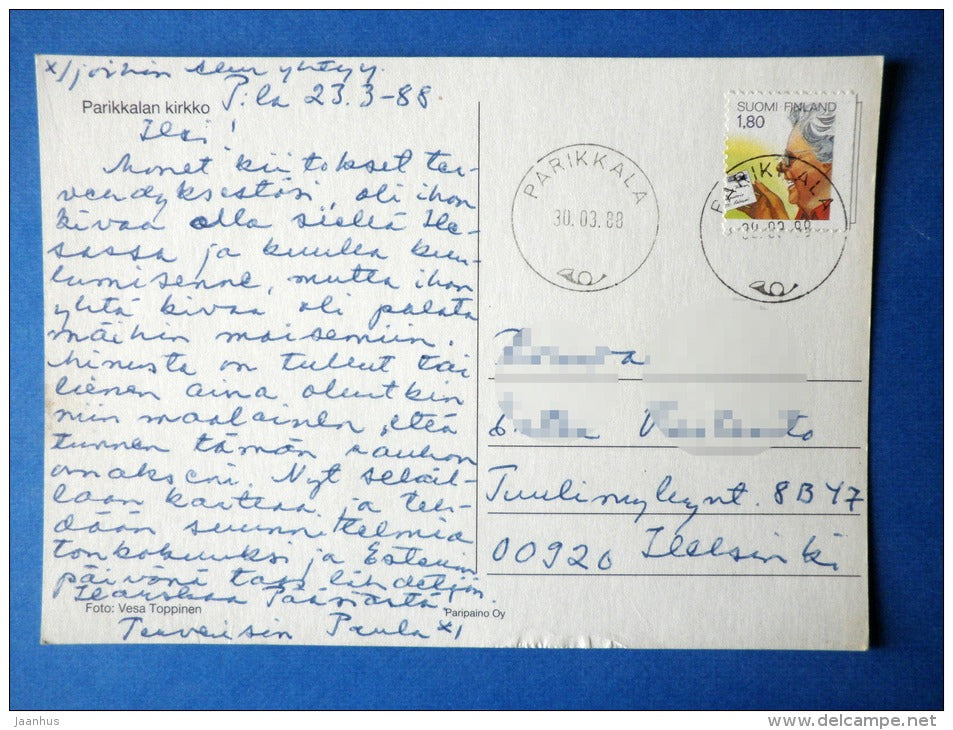 x/ joihin seur yhtyy.
Parikkalan kirkko P:la 23.3-88.
Hei!
Monet kiitokset ter-
veydyksestäsi, oli ihan
kivaa olla siellä He-
sassa ja kuulla kuu-
lumisenne, mutta ihan
yhtä kivaa oli palata
näihin maisemiin.
Minusta on tullut tai
lienen aina ollutkin
niin maalainen, että
tunnen tämän rauhan
omakseni. Nyt seläil-
lään karttaa ja teh-
dään suunnitelmia
toukokuuksi ja
päivänä taas lähdetään.
Hauskaa Pääsiästä.
Foto: Vesa Toppinen
Terveisin Paula x/
Paripaino Oy
SUOMI FINLAND
1,80
PARIKKALA
30.03.88
PARIKKALA
30.03.88
Tuulimyllynt. 8 B 47
00920 Helsinki
jaanhus
www.delcampe.net